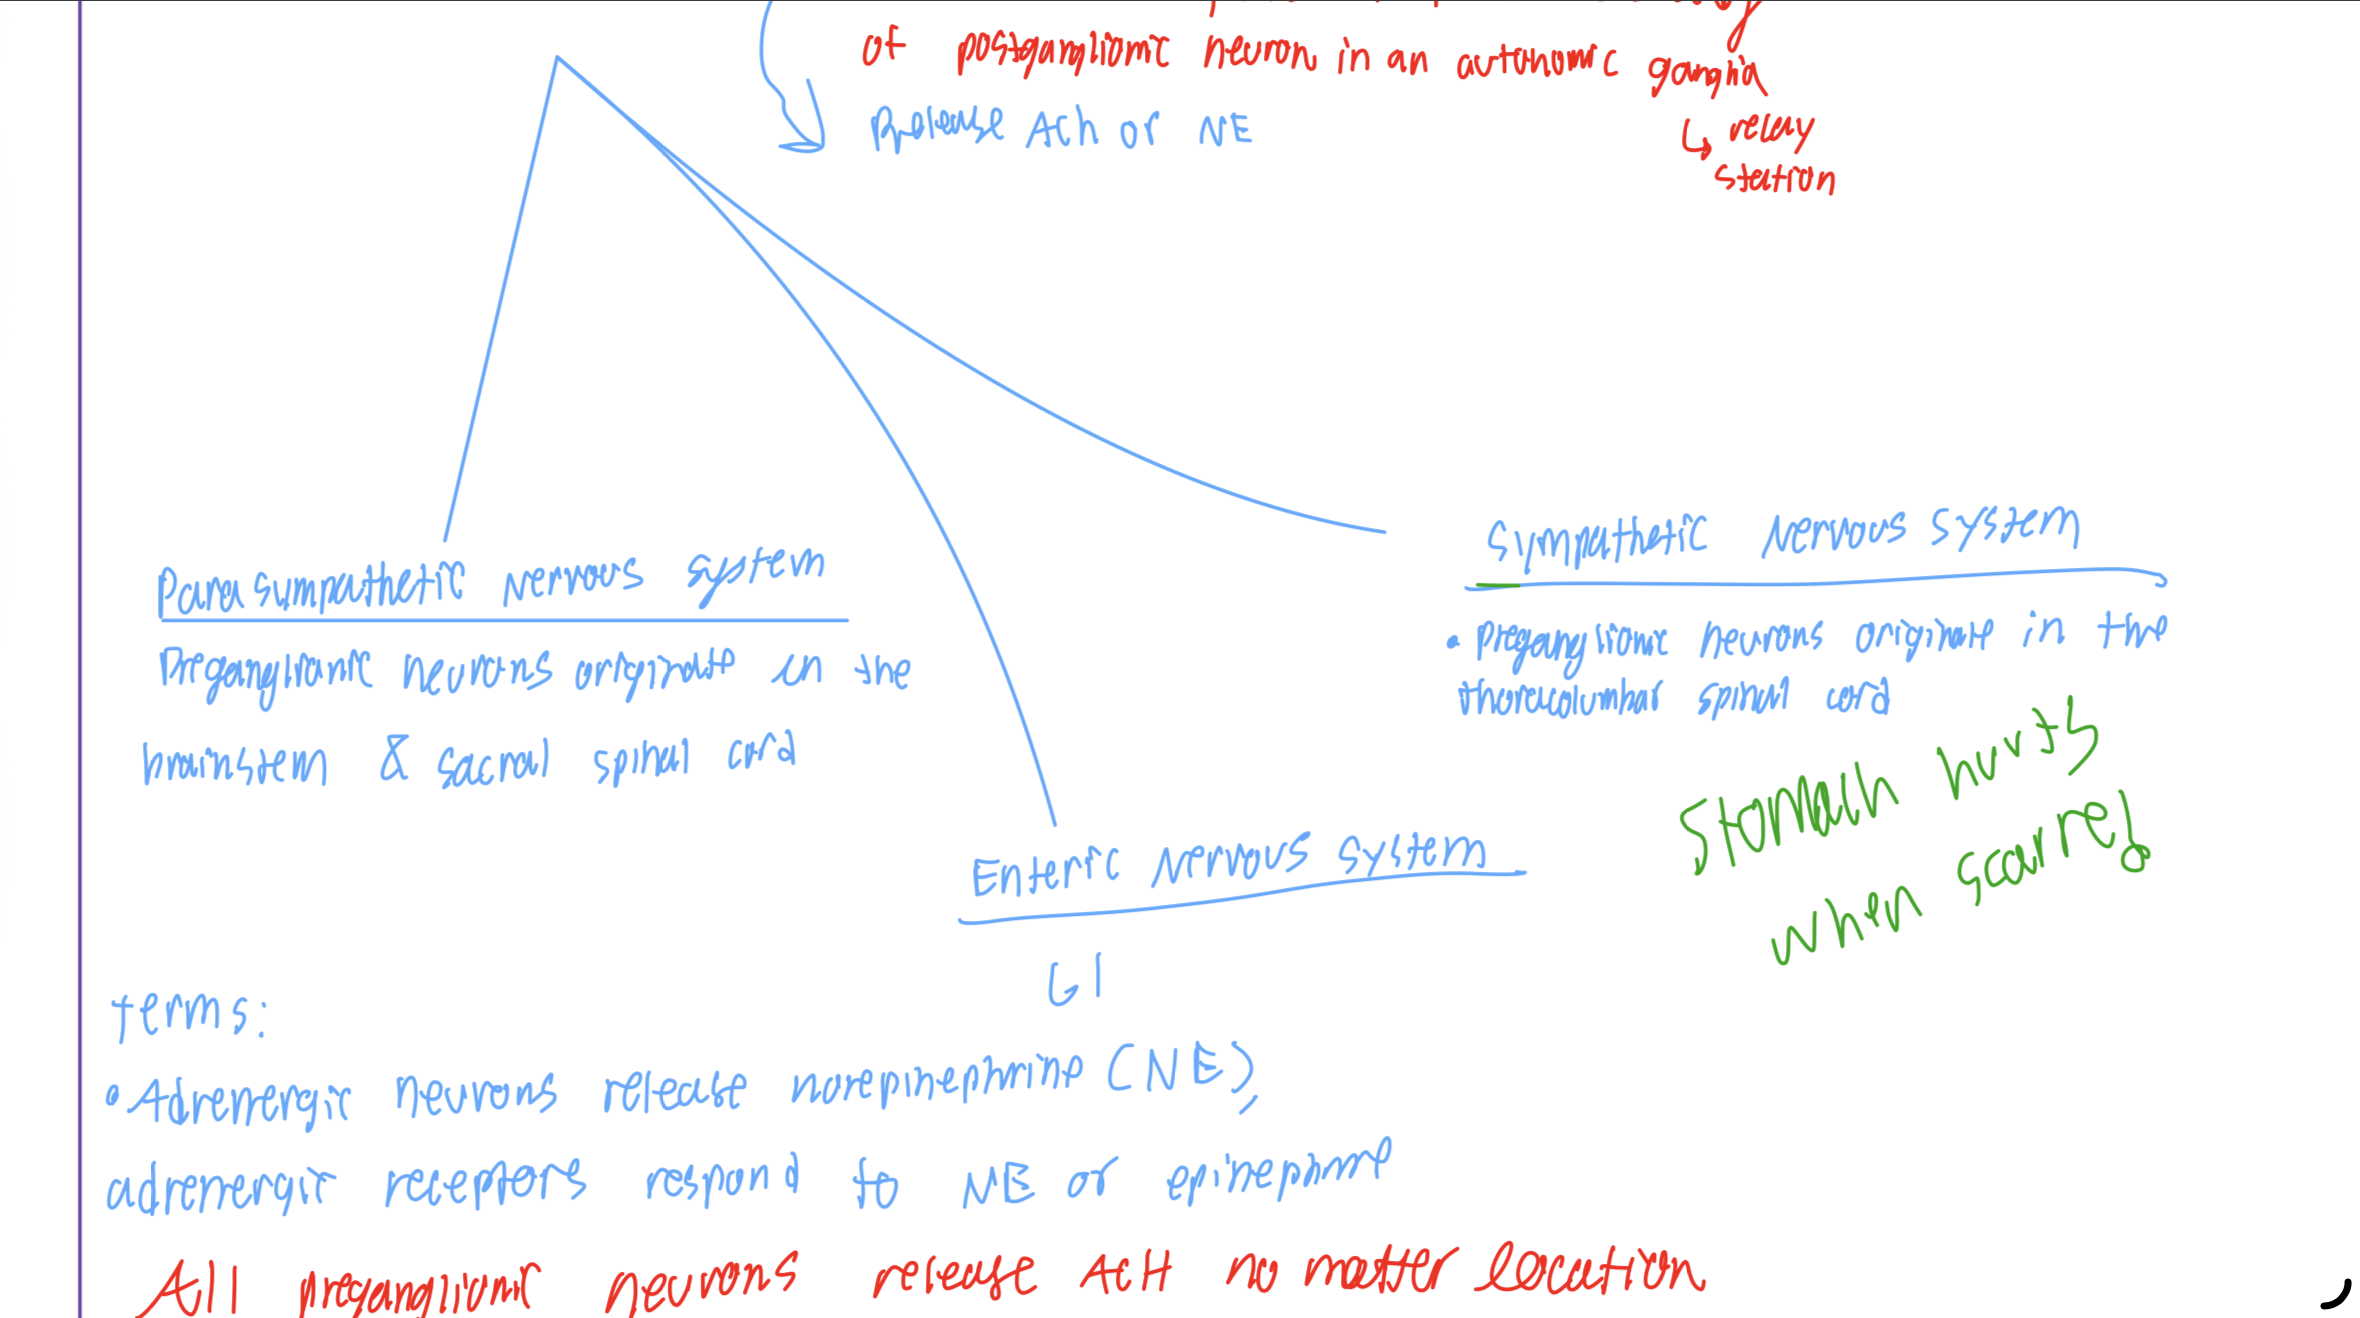 of postganglionic neuron in an autonomic ganglia
↳ relay
station
Release ACh or NE
Sympathetic nervous system
• Preganglionic neurons originate in the
thoracolumbar spinal cord
Parasympathetic nervous system
Preganglionic neurons originate in the
brainstem & sacral spinal cord
Stomach hurts
when scarred
Enteric nervous system
GI
terms:
• Adrenergic neurons release norepinephrine (NE),
adrenergic receptors respond to NE or epinephrine
All preganglionic neurons release ACH no matter location